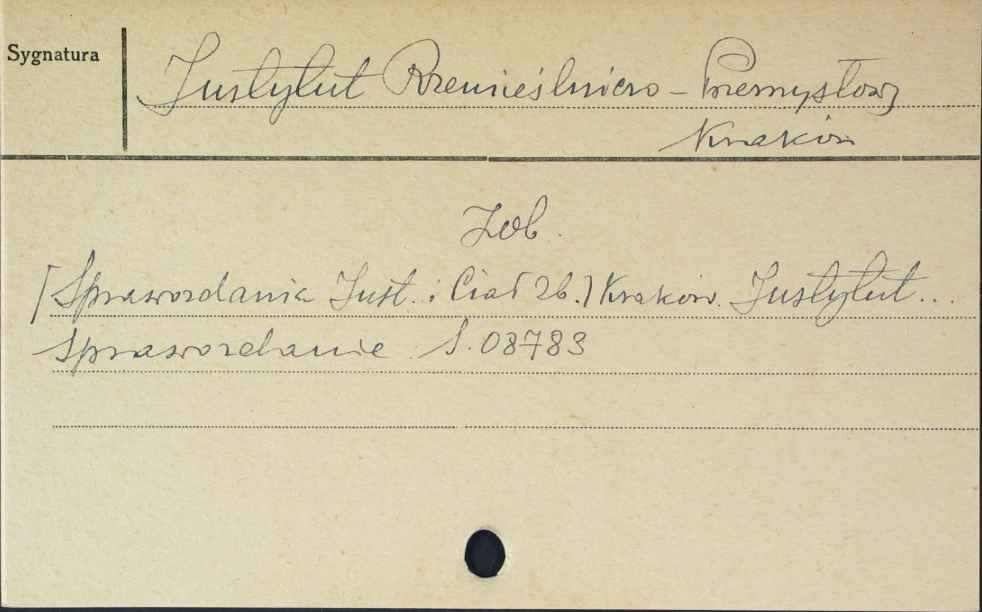 Sygnatura
Instytut Rzemieślniczo - Przemysłowy
Kraków
Zob.
[Sprawozdania Inst. i Ciał Zb.] Kraków. Instytut...
Sprawozdanie. S. 08783